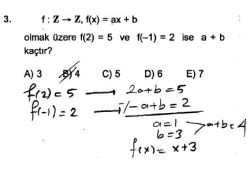 3. f : Z → Z, f(x) = ax + b
olmak üzere f(2) = 5 ve f(-1) = 2 ise a + b
kaçtır?
A) 3 B) 4 C) 5 D) 6 E) 7
f(2) = 5 → 2a+b = 5
f(-1) = 2 → -/-a+b = 2
a=1
b=3 > a+b=4
f(x) = x+3